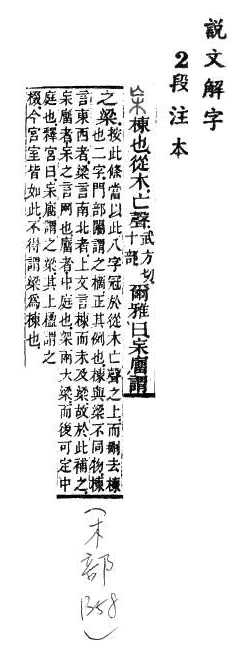 說文解字
2段注本
棟也從木亡聲武方切十部爾雅曰杗廇謂
之梁按此條當以此八字冠於從木亡聲之上而刪去棟
也二字門部䦗謂之樀正其例也棟與梁不同物棟
言東西者梁言南北者上文言棟而未及梁故於此補之
杗廇者杗之言网也廇者中庭也架兩大梁而後可定中
庭也釋宮曰杗廇謂之梁其上楹謂之
棳今宮室皆如此不得謂梁爲棟也
（木部